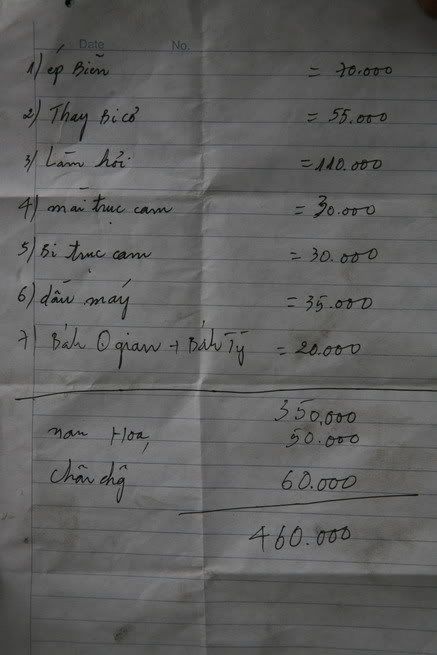 Date No.
1) ép Biên = 70.000
2) Thay Bi cổ = 55.000
3) Làm hơi = 110.000
4) mài trục cam = 30.000
5) Bi trục cam = 30.000
6) dầu máy = 35.000
7) Bánh gian + Bánh Tỳ = 20.000
350.000
nan Hoa, 50.000
chân chg 60.000
460.000